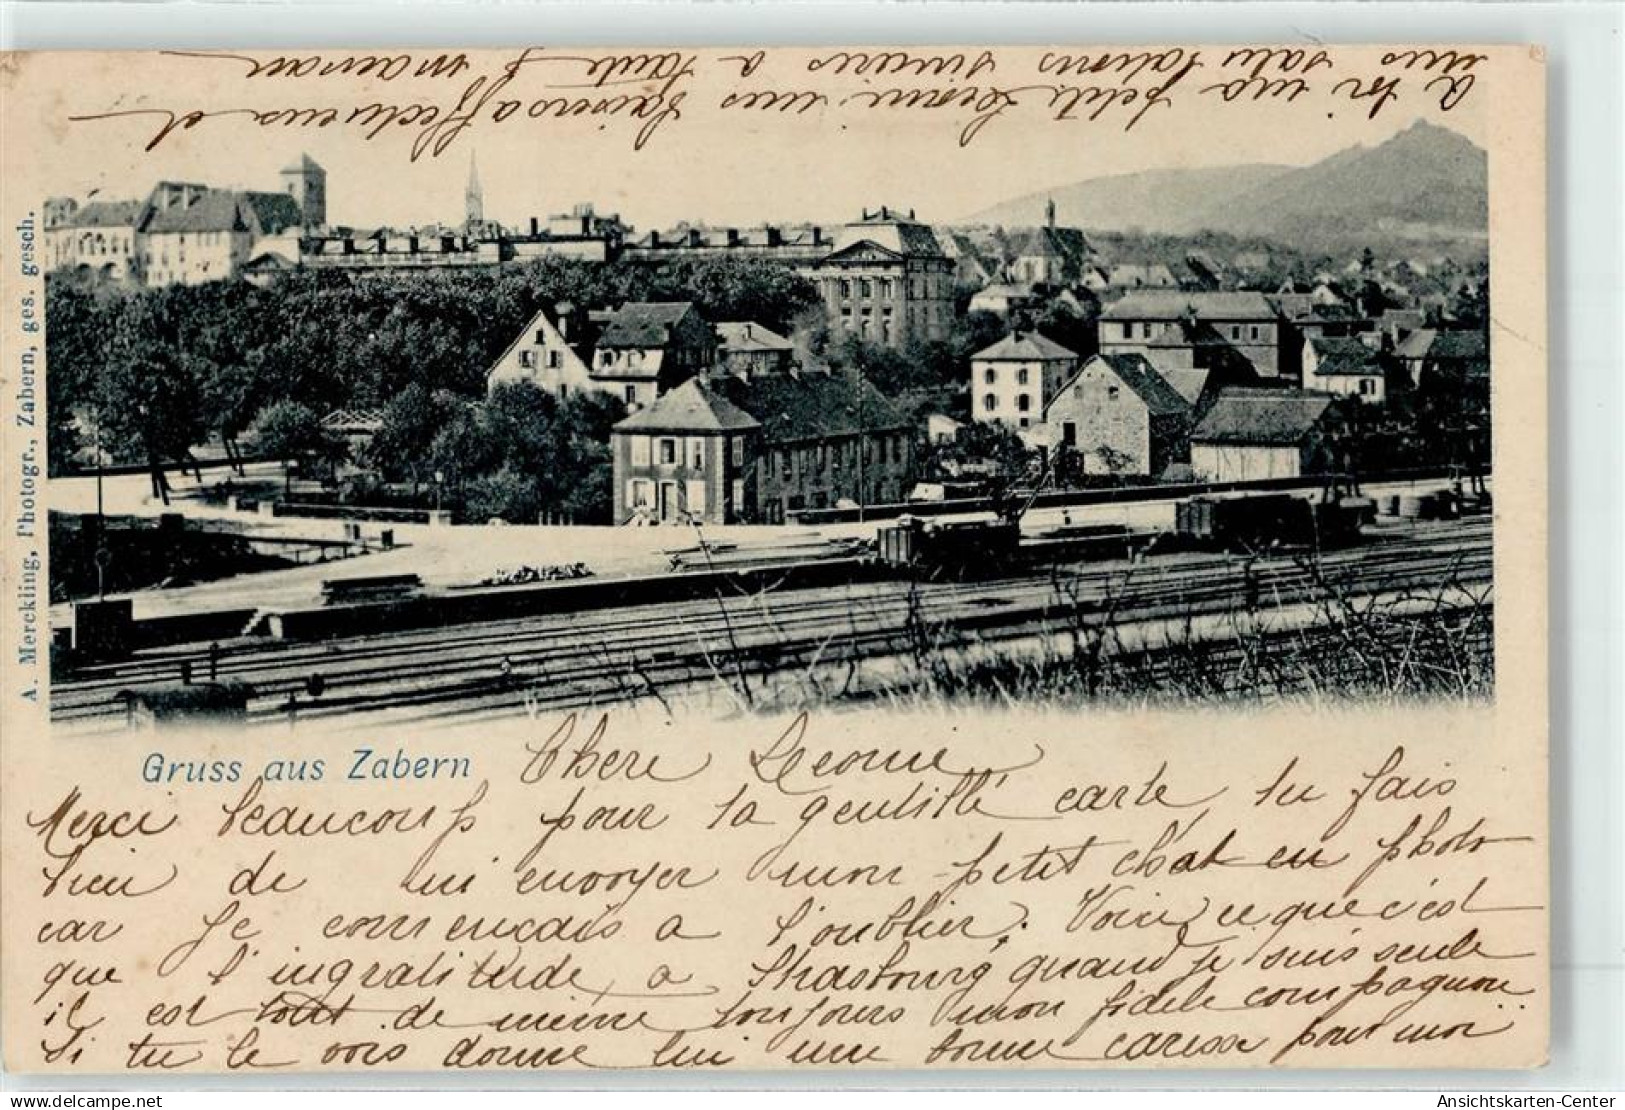 A. Merckling, Photogr., Zabern, ges. gesch.
Gruss aus Zabern
Chere Leonie
Merci beaucoup pour ta gentille carte, tu fais
bien de lui envoyer mon petit chat en photo
car je commençais a l'oublier. Voici ce que c'est
que l'ingratitude, a Strasbourg quand je suis seule
il est tout de même toujours mon fidele compagnon.
Si tu le vois donne lui une bonne caresse pour moi
a toi ma petite Leonie mes baisers affectueux et
mes salutations sinceres a toute maman
delcampe.net
Ansichtskarten-Center